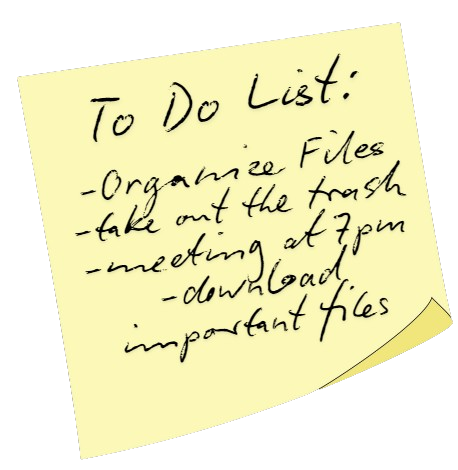 To Do List:
-Organize Files
-take out the trash
-meeting at 7pm
-download
important files